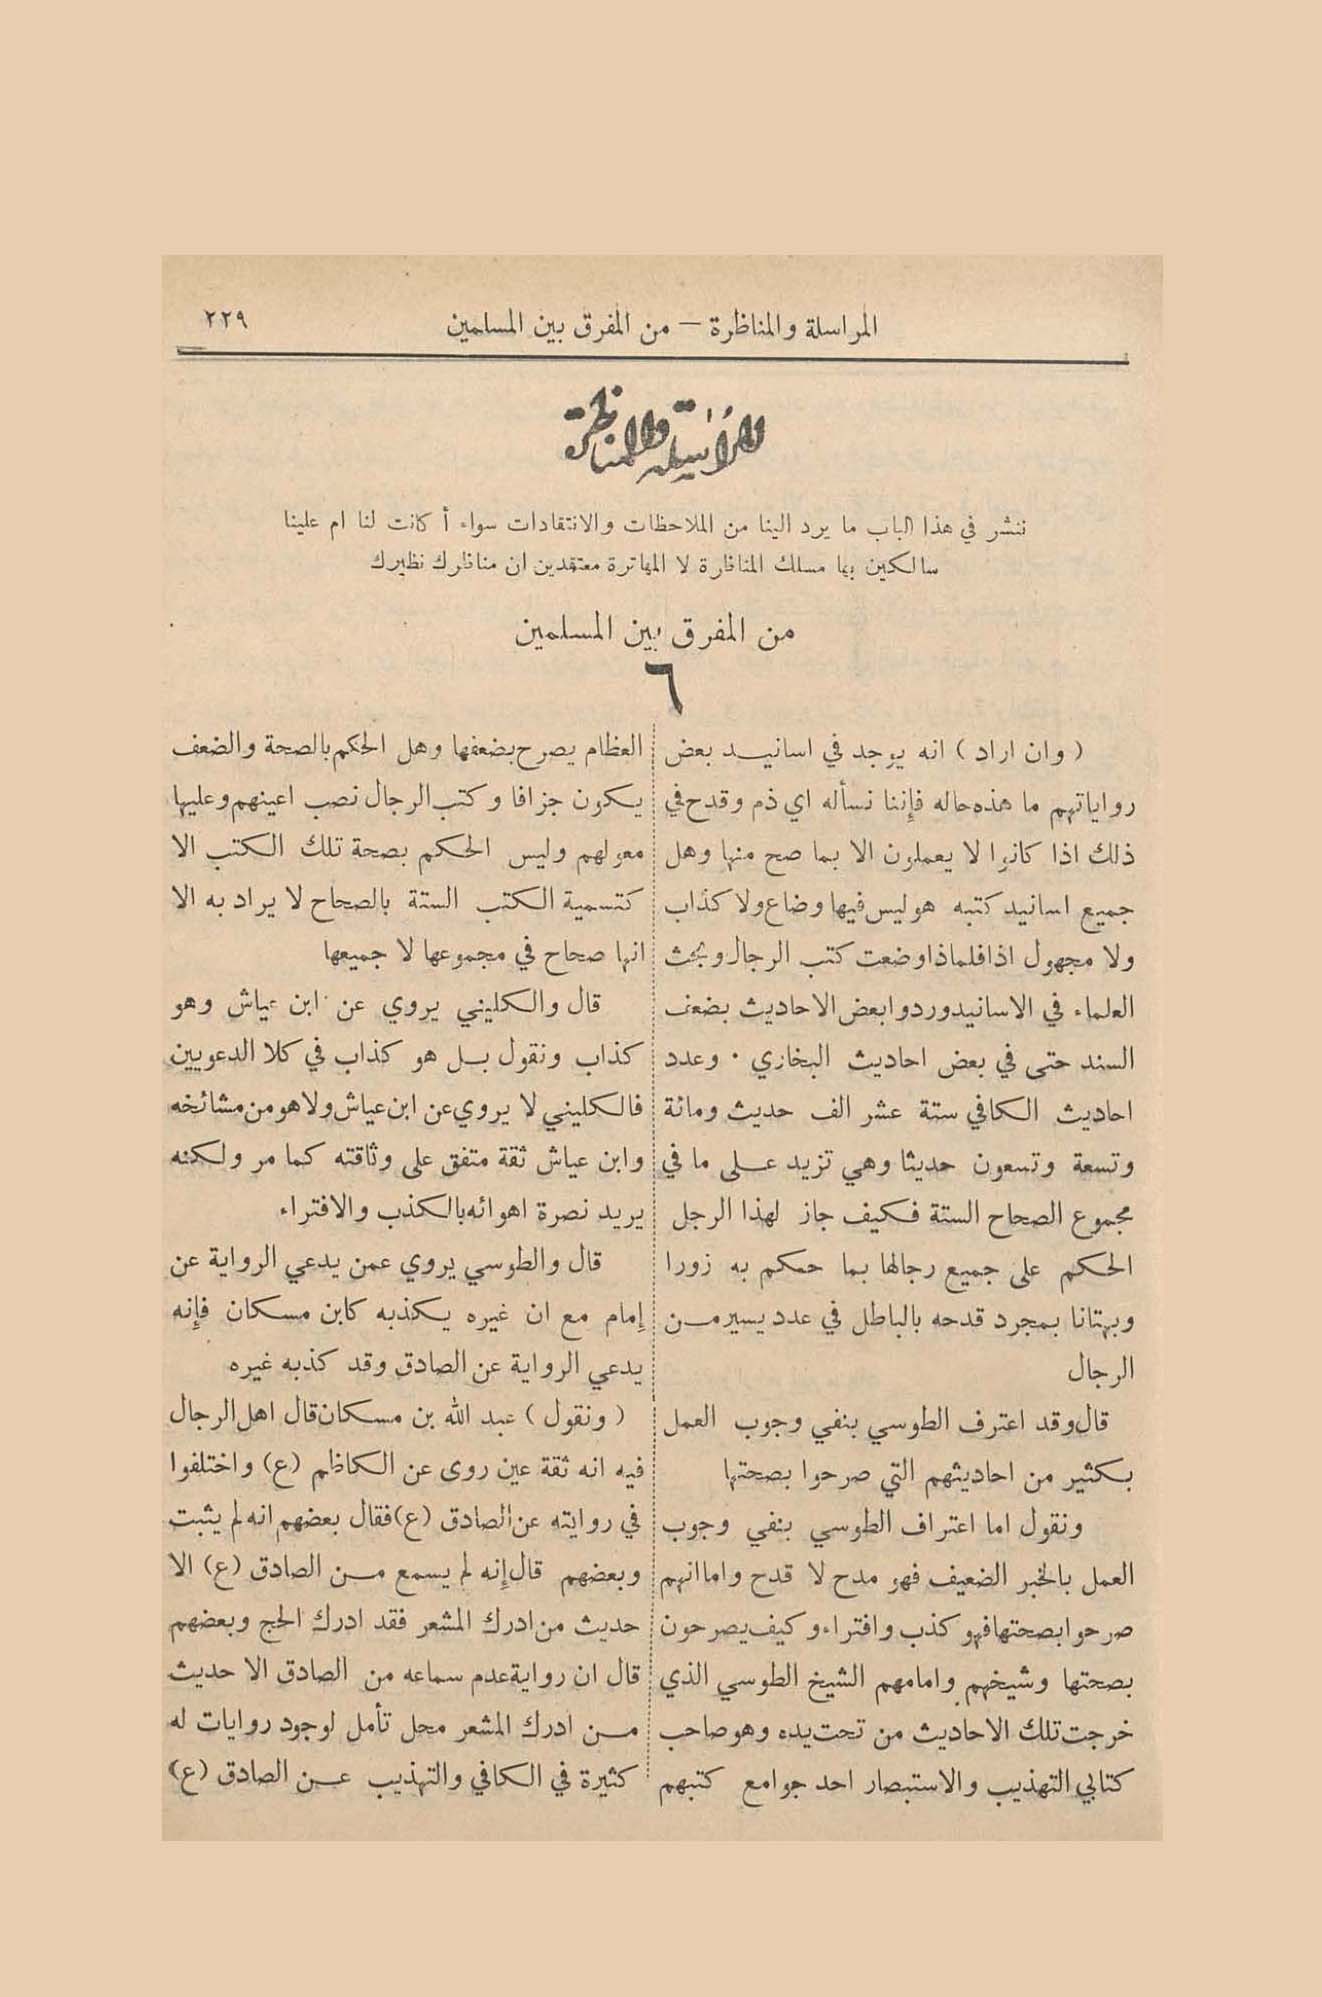 المراسلة والمناظرة — من المفرق بين المسلمين
٢٢٩
المراسلة والمناظرة
ننشر في هذا الباب ما يرد الينا من الملاحظات والانتقادات سواء أ كانت لنا ام علينا
سالكين بها مسلك المناظرة لا المهاترة معتقدين ان مناظرك نظيرك
من المفرق بين المسلمين
٦
( وان اراد ) انه يوجد في اسانيد بعض
رواياتهم ما هذه حاله فإننا نسأله اي ذم وقدح في
ذلك اذا كانوا لا يعملون الا بما صح منها وهل
جميع اسانيد كتبه هو ليس فيها وضاع ولا كذاب
ولا مجهول اذا فلماذا وضعت كتب الرجال وبحث
العلماء في الاسانيد وردوا بعض الاحاديث بضعف
السند حتى في بعض احاديث البخاري . وعدد
احاديث الكافي ستة عشر الف حديث ومائة
وتسعة وتسعون حديثا وهي تزيد على ما في
مجموع الصحاح الستة فكيف جاز لهذا الرجل
الحكم على جميع رجالها بما حكم به زورا
وبهتانا بمجرد قدحه بالباطل في عدد يسير من
الرجال
قال وقد اعترف الطوسي بنفي وجوب العمل
بكثير من احاديثهم التي صرحوا بصحتها
ونقول اما اعتراف الطوسي بنفي وجوب
العمل بالخبر الضعيف فهو مدح لا قدح واما انهم
صرحوا بصحتها فهو كذب وافتراء وكيف يصرحون
بصحتها وشيخهم وامامهم الشيخ الطوسي الذي
خرجت تلك الاحاديث من تحت يده وهو صاحب
كتابي التهذيب والاستبصار احد جوامع كتبهم
العظام يصرح بضعفها وهل الحكم بالصحة والضعف
يكون جزافا وكتب الرجال نصب اعينهم وعليها
معولهم وليس الحكم بصحة تلك الكتب الا
كتسمية الكتب الستة بالصحاح لا يراد به الا
انها صحاح في مجموعها لا جميعها
قال والكليني يروي عن ابن عياش وهو
كذاب ونقول بل هو كذاب في كلا الدعويين
فالكليني لا يروي عن ابن عياش ولا هو من مشائخه
وابن عياش ثقة متفق على وثاقته كما مر ولكنه
يريد نصرة اهوائه بالكذب والافتراء
قال والطوسي يروي عمن يدعي الرواية عن
إمام مع ان غيره يكذبه كابن مسكان فإنه
يدعي الرواية عن الصادق وقد كذبه غيره
( ونقول ) عبد الله بن مسكان قال اهل الرجال
فيه انه ثقة عين روى عن الكاظم (ع) واختلفوا
في روايته عن الصادق (ع) فقال بعضهم انه لم يثبت
وبعضهم قال إنه لم يسمع من الصادق (ع) الا
حديث من ادرك المشعر فقد ادرك الحج وبعضهم
قال ان رواية عدم سماعه من الصادق الا حديث
من ادرك المشعر محل تأمل لوجود روايات له
كثيرة في الكافي والتهذيب عن الصادق (ع)